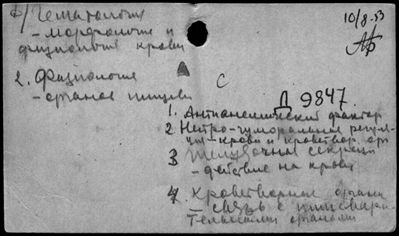 1/ Гематология
- морфология и
физиология крови
10/8-53
2. Физиология
- органов пищев.
С
Д 9847
1. Антианемический фактор
2 Нейро-гуморальная регул-
- крови и кроветвор. орг
3 Желудочная секреция
- действие на кровь
4 Кроветворные органы
- связь с пищевари-
тельными органами